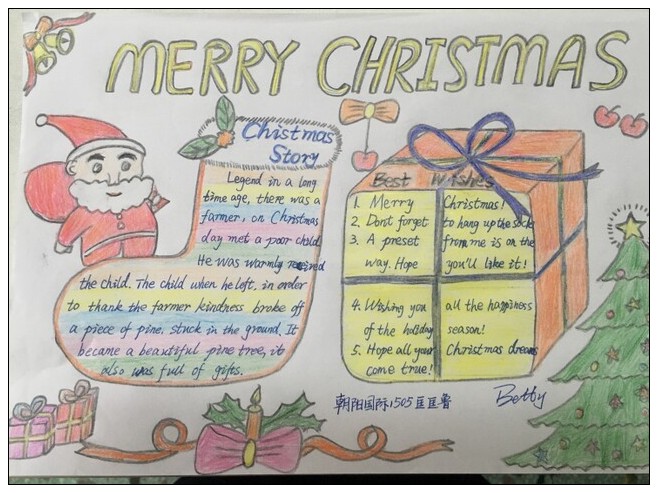 MERRY CHRISTMAS
Chistmas
Story
Legend in a long
time age, there was a
farmer, on Christmas
day met a poor child.
He was warmly received
the child. The child when he left, in order
to thank the farmer kindness broke off
a piece of pine. stuck in the ground. It
became a beautiful pine tree, it
also was full of gifts.
Best Wishes
1. Merry Christmas!
2. Dont forget to hang up the sock
3. A preset from me is on the
way. Hope you'll like it!
4. Wishing you all the happiness
of the holiday season!
5. Hope all your Christmas dreams
come true!
朝阳国际1505匡匡鲁
Betty